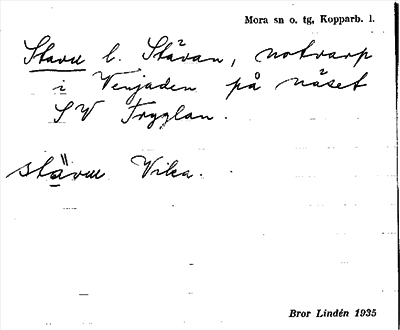 Mora sn o. tg, Kopparb. l.
Stavu l. Stävan, notvarp
i Venjaden på näset
SV Frygglan.
stävu Vika.
Bror Lindén 1935